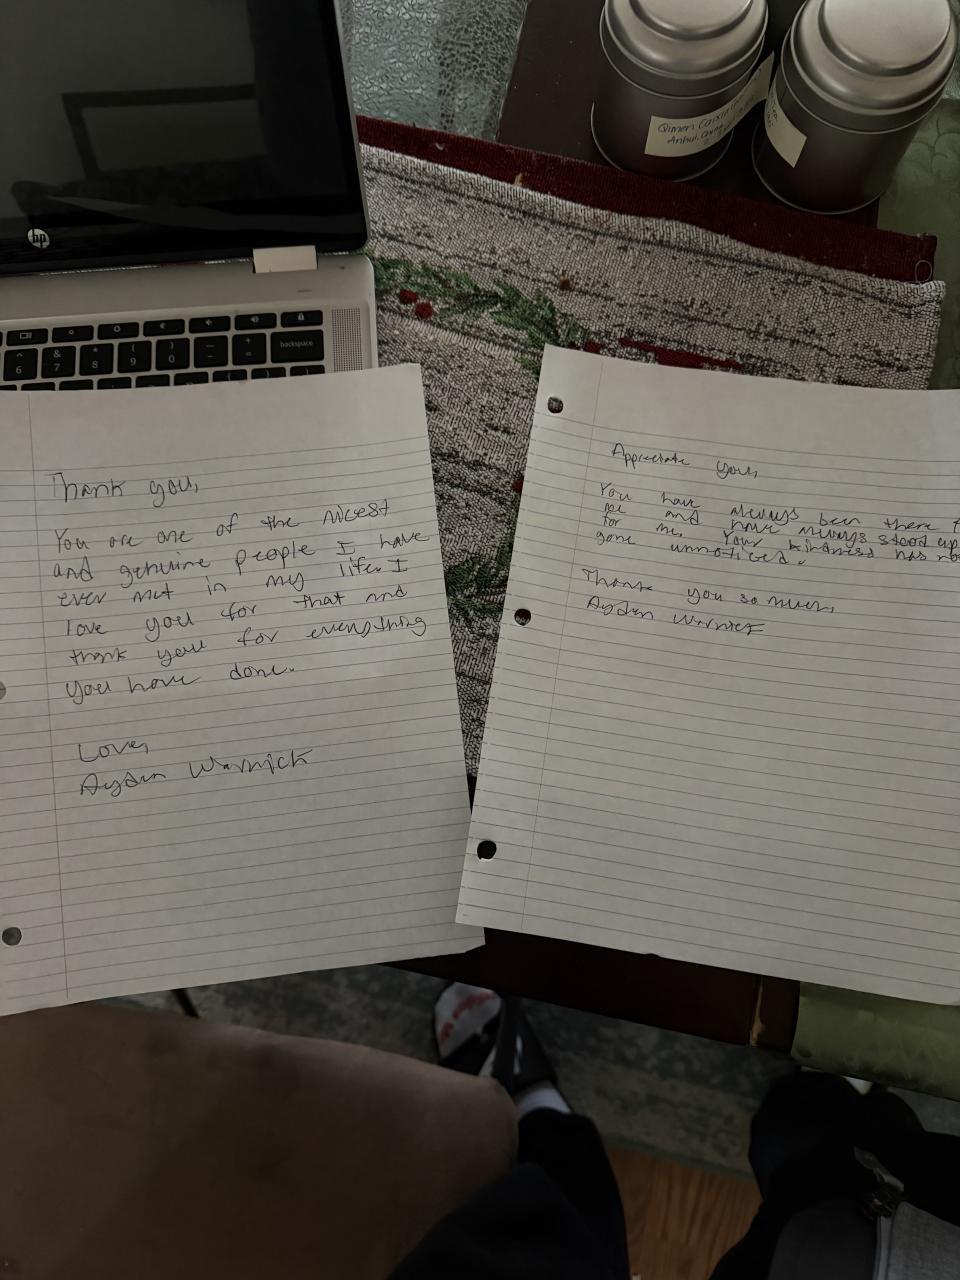 hp
6
&
7
*
8
(
9
)
0
-
+
=
backspace
Qimen Caixia
Anhui, China
Thank you,
You are one of the nicest
and genuine people I have
ever met in my life. I
love you for that and
thank you for everything
you have done.
Love,
Ayden Warnick
Appreciate you,
You have always been there f
me and have always stood up
for me. Your kindness has no
gone unnoticed.
Thank you so much,
Ayden Warnick